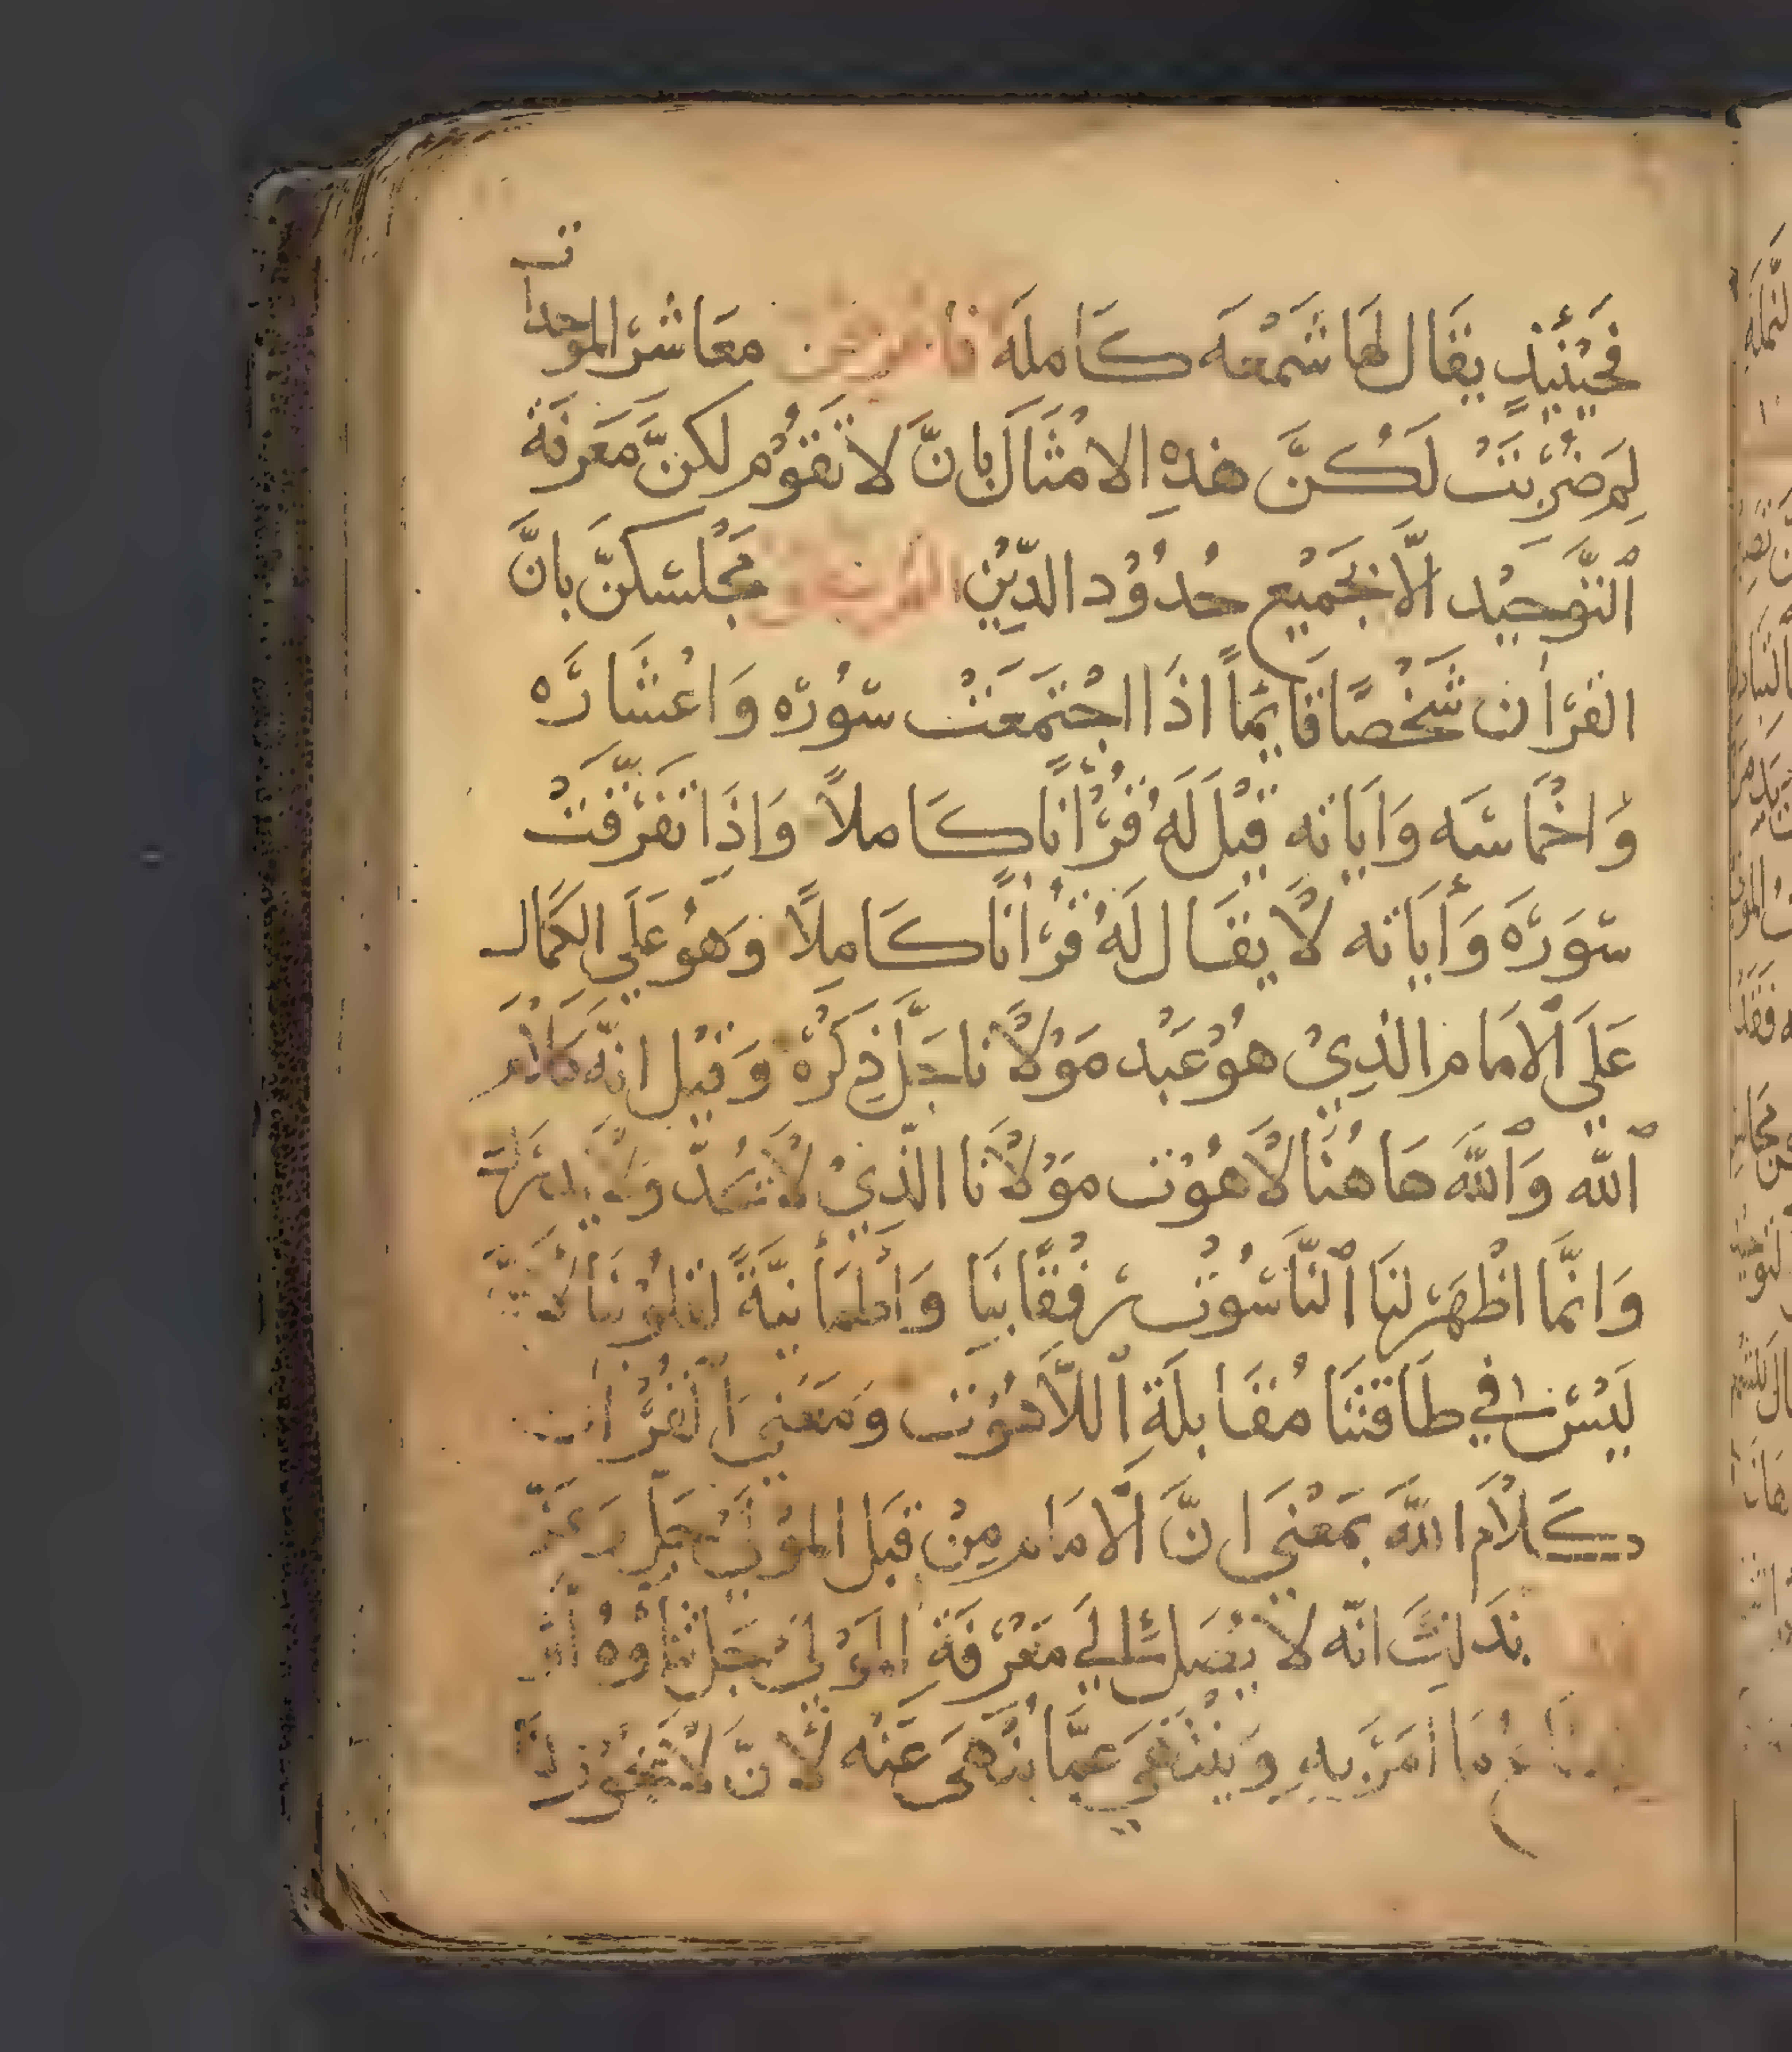 فَحِيْنَئِيْذٍ يقَال لهَا شَمْعَه كَاملَه معَاشرَ الموحدات
لِمَ ضُرِبَتْ لَكُنَّ هَذِهِ الامْثَالَ بانَّ لا تقَوُم لكنَّ مَعَرفَة
ٱلتَّوحَيْد الَّا بجَمَيْع حُدُوُد الدِّيْنِ مَجْلسَكنَّ بانَّ
القرأن شَخْصًا قَايمًا اذَا اجْتَمَعَتْ سّوُرَه وَاعْشَارَه
وَاخْمَاسَه وَايَاته قيْلَ لَهُ قُرْانًا كَاملاً وَاذَا تفَرّقَتْ
سّوَرَه وَأيَاته لَا يقَال لَهُ قُرْانًا كَامِلًا وَهوُ عَلَي الكمَال
عَلَي الامَام الذِيْ هوُ عَبْد مَوْلَانا جَلَّ ذِكْرُه وَقيْل انهّ كَلَام
ٱللّه وَٱللَّه هَاهُنَا لَاهُوُت مَوْلَانَا الَّذِيْ لَا
وَانمَّا اظْهَرَ لنَا ٱلنَّاسُوُت رفْقًا بنَا وَاطْمَأنيَّةً لقلوُبنَا
لَيْسَ في طَاقتنَا مُقَابلَةِ ٱللَّاهوُت وَمَعَني ٱلقُرْان
كَلَام اللَّه بمَعْنَى انَّ الامَام مِنْ قبَل الموْلَى جَلَّ وَعَزّ
بذَلكَ انّه لَا يصَل الي مَعْرفَةِ المَوْلَى جَلّ ثنَاؤهُ
مَا امَرَ بهِ وَينْتَهَي عَمَّا نهَى عَنْه لَانَّ